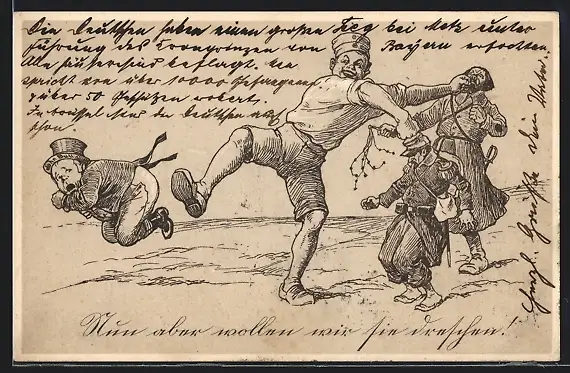 Die Deutschen haben einen großen Sieg bei Metz unter
Führung des Kronprinzen von Bayern erfochten.
Alle Häuser sind beflagt. Man
spricht von über 10000 Gefangenen
& über 50 Geschützen erobert.
In Brüssel sind die Deutschen auch
schon.
Herzl. Grüße Dein
Nun aber wollen wir sie dreschen!